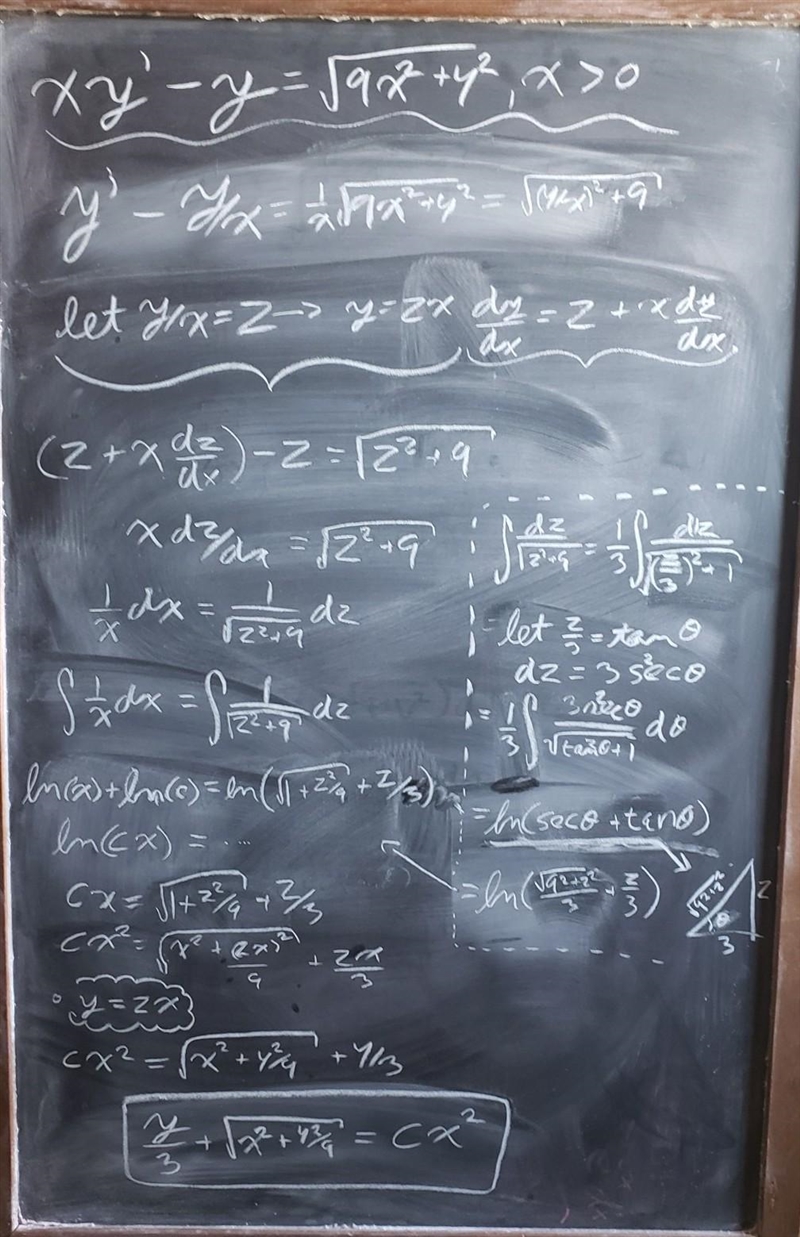 xy' - y = √(9x² + y²), x > 0
y' - y/x = 1/x √(9x² + y²) = √((y/x)² + 9)
let y/x = z → y = zx dy/dx = z + x dz/dx.
(z + x dz/dx) - z = √(z² + 9)
x dz/dx = √(z² + 9)
1/x dx = 1/√(z² + 9) dz
∫ 1/x dx = ∫ 1/√(z² + 9) dz
ln(x) + ln(c) = ln(√(1 + z²/9) + z/3)
ln(cx) = ...
cx = √(1 + z²/9) + z/3
cx² = √(x² + (zx)²/9) + zx/3
∘ y = zx
cx² = √(x² + y²/9) + y/3
y/3 + √(x² + y²/9) = cx²
∫ dz/√(z² + 9) = 1/3 ∫ dz/√((z/3)² + 1)
let z/3 = tan θ
dz = 3 sec²θ
= 1/3 ∫ 3 sec²θ/√(tan²θ + 1) dθ
= ln(sec θ + tan θ)
= ln(√(9² + z²)/3 + z/3)
√(9² + z²) z
θ
3